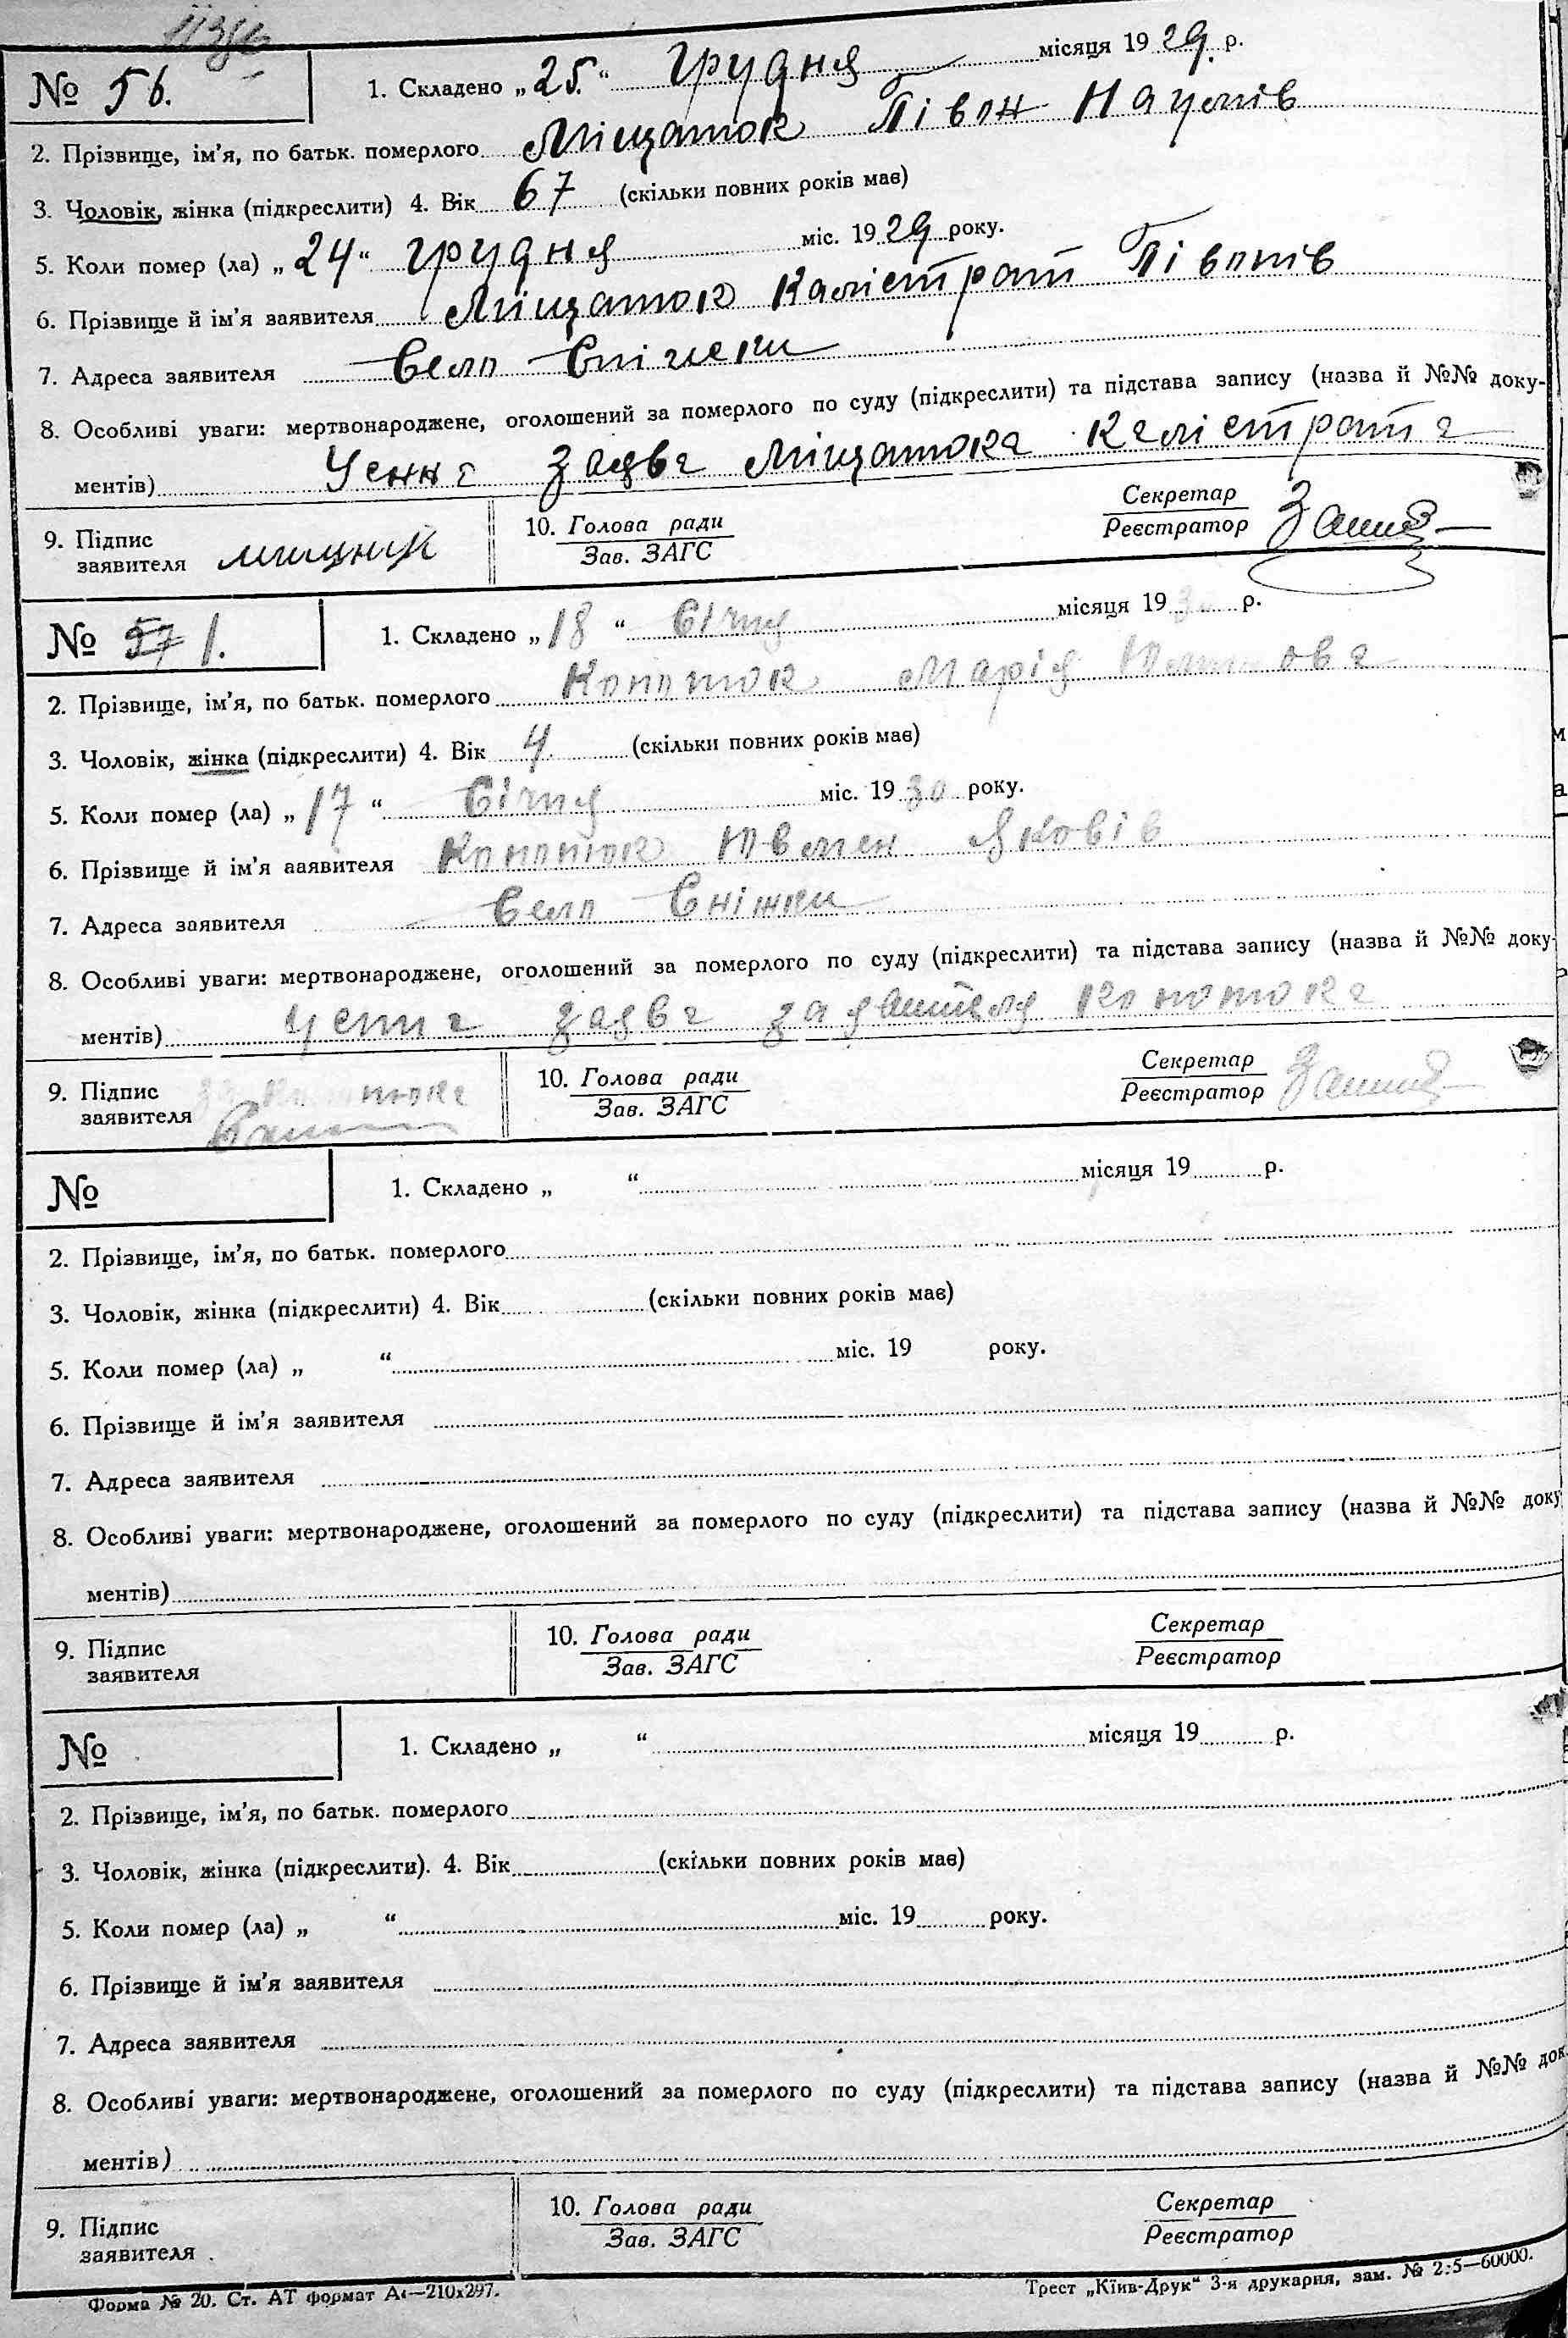 № 56.
1. Складено „25.“ грудня місяця 1929. р.
2. Прізвище, ім’я, по батьк. померлого Міщаток Півон Наумів
3. Чоловік, жінка (підкреслити) 4. Вік 67 (скільки повних років має)
5. Коли помер (ла) „24“ грудня міс. 1929 року.
6. Прізвище й ім’я заявителя Міщаток Калістрат Півонів
7. Адреса заявителя Село Сніжки
8. Особливі уваги: мертвонароджене, оголошений за померлого по суду (підкреслити) та підстава запису (назва й №№ доку-
ментів) Усна заява Міщатока Калістрата
9. Підпис заявителя
10. Голова ради
Зав. ЗАГС
Секретар
Реєстратор
№ 57 1.
1. Складено „18“ Січня місяця 193 р.
2. Прізвище, ім’я, по батьк. померлого Коноток Марія
3. Чоловік, жінка (підкреслити) 4. Вік 4 (скільки повних років має)
5. Коли помер (ла) „17“ Січня міс. 1930 року.
6. Прізвище й ім’я заявителя Коноток Яковів
7. Адреса заявителя Село Сніжки
8. Особливі уваги: мертвонароджене, оголошений за померлого по суду (підкреслити) та підстава запису (назва й №№ доку-
ментів) Усна заява заявителя Конотока
9. Підпис заявителя
10. Голова ради
Зав. ЗАГС
Секретар
Реєстратор
№
1. Складено „ “ місяця 19 р.
2. Прізвище, ім’я, по батьк. померлого
3. Чоловік, жінка (підкреслити) 4. Вік (скільки повних років має)
5. Коли помер (ла) „ “ міс. 19 року.
6. Прізвище й ім’я заявителя
7. Адреса заявителя
8. Особливі уваги: мертвонароджене, оголошений за померлого по суду (підкреслити) та підстава запису (назва й №№ доку
ментів)
9. Підпис заявителя
10. Голова ради
Зав. ЗАГС
Секретар
Реєстратор
№
1. Складено „ “ місяця 19 р.
2. Прізвище, ім’я, по батьк. померлого
3. Чоловік, жінка (підкреслити). 4. Вік (скільки повних років має)
5. Коли помер (ла) „ “ міс. 19 року.
6. Прізвище й ім’я заявителя
7. Адреса заявителя
8. Особливі уваги: мертвонароджене, оголошений за померлого по суду (підкреслити) та підстава запису (назва й №№ док
ментів)
9. Підпис заявителя
10. Голова ради
Зав. ЗАГС
Секретар
Реєстратор
Форма № 20. Ст. АТ формат А4—210х297.
Трест „Київ-Друк“ 3-я друкарня, зам. № 2:5—60000.